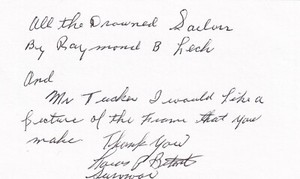 All the Drowned Sailors
By Raymond B Lech
And
Mr Tucker I would like a
picture of the frame that you
make Thank You
Survivor